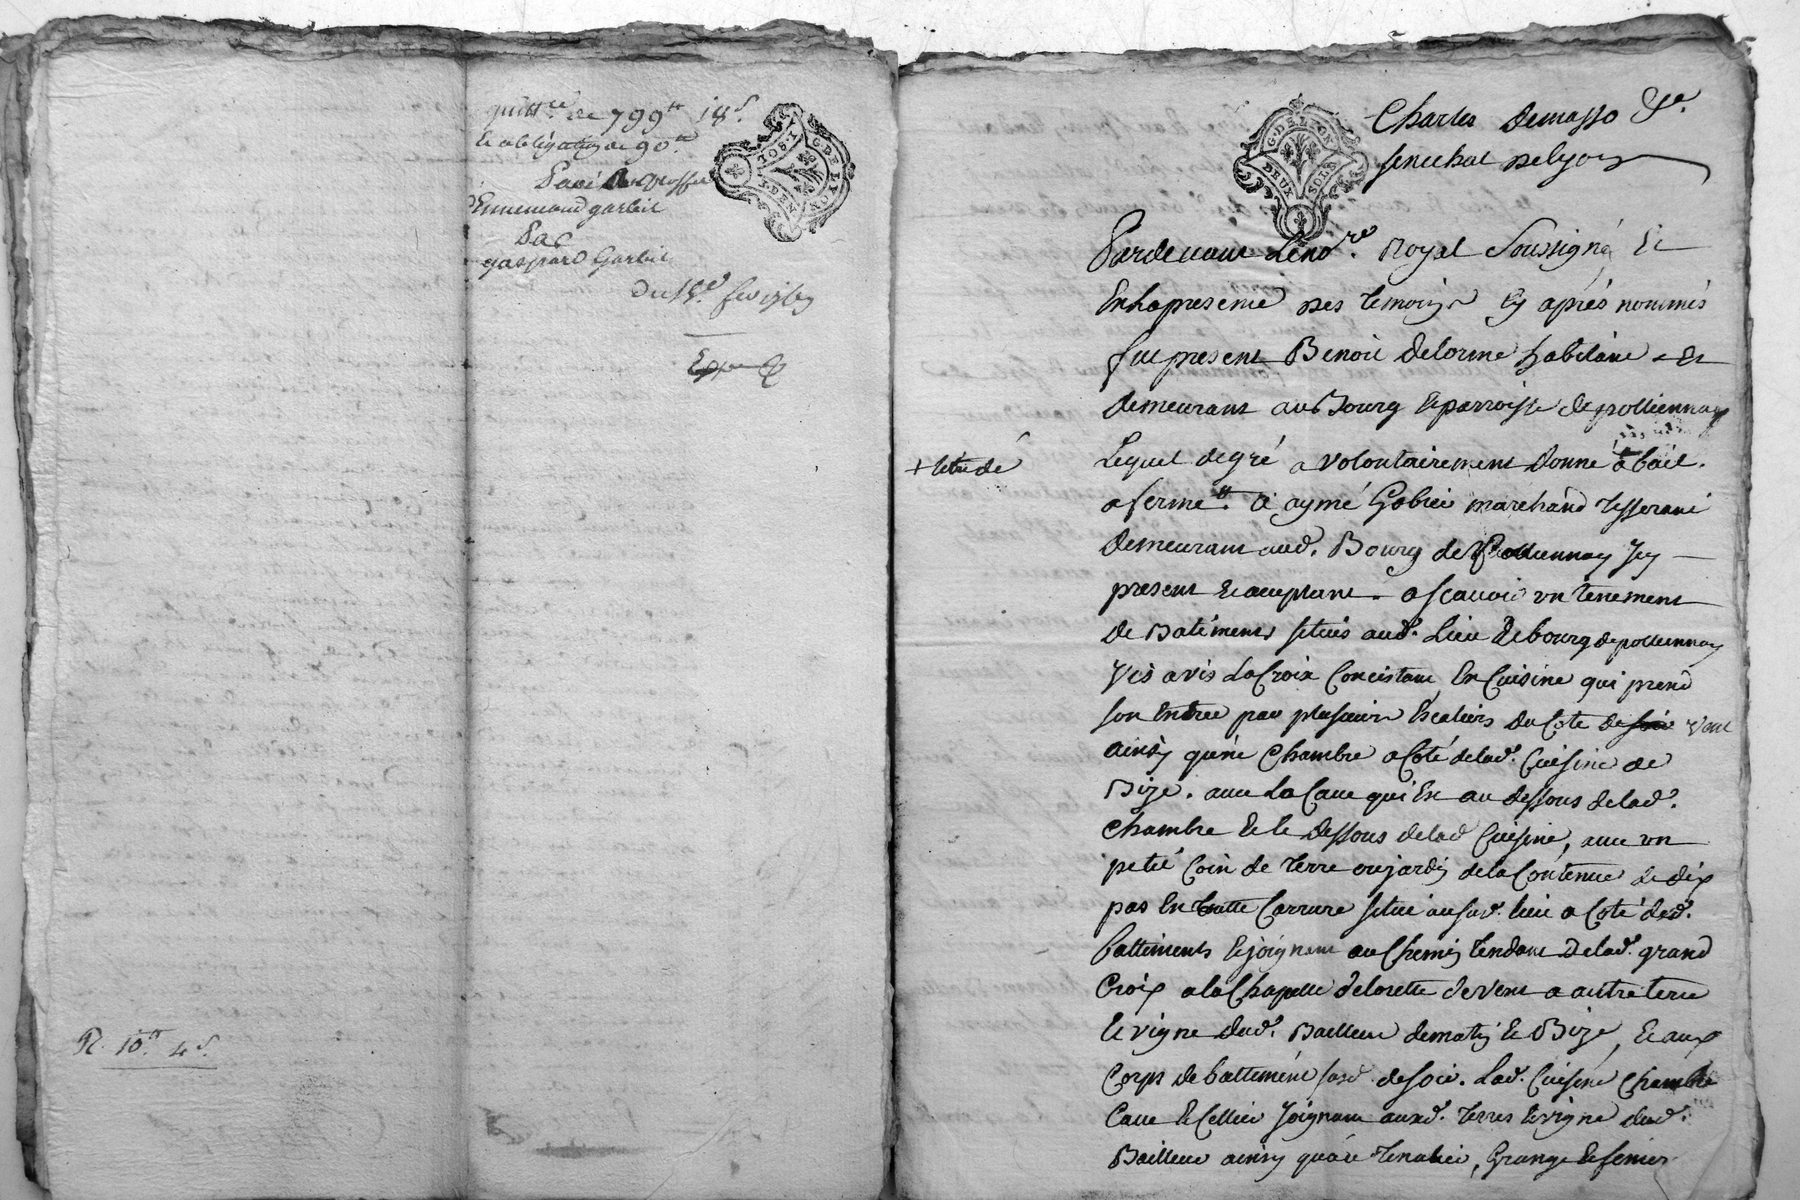 quitt.ce de 799tt 18s.
et obligation de 90tt
Passé
Ennemond garbit
Par
gaspard Garbit
Du 15e. fev
Exp.
R. 10tt. 4s.
G. DE LYON
DEUX SOLS
Charles Demasso Gr.
senechal de lyon
Pardevant Le no.re Royal Soussigné, Et
En la presence des temoins Cy aprés nommés
fut present Benoit delorme habitant Et
demeurant au Bourg et parroisse de pollionnay
+ et cédé
Lequel de gré a volontairement donné a bail
a ferme. + a aymé Gobier marchand tisserant
demeurant aud. Bourg de Pollionnay Icy
present et acceptant. a scavoir un tenement
de Batiments situés aud. Lieu de bourg de pollionnay
vis avis La Croix Concistant En Cuisine qui prend
son Entrée par plusieurs Escaliers du Coté de soir vent
ainsy qu'une Chambre a Coté de lad. Cuisine de
Bize. avec La Cave qui Est au dessous de lad.
Chambre et le dessous de lad Cuisine, avec un
petit Coin de terre ou jardin de la Contenue de dix
pas En toutte Carrure situé ausud. lieu a Coté desd.
battiments et joignant au Chemin tendant de lad. grand
Croix a la Chapelle de lorette de vent a autre terre
et vigne dud. Bailleur de matin et Bize, et aux
Corps de battiment susd. de soir. Lad. Cuisine Chambre
Cave et Cellier Joignant auxd. terres et vigne dud.
Bailleur ainsy qu'a, Grange et feniere